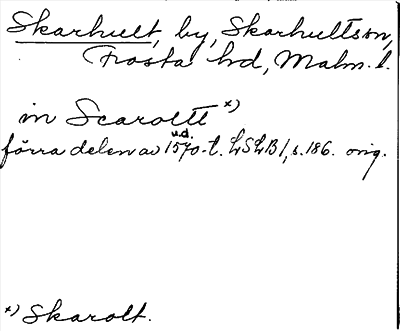 Skarhult, by, Skarhults sn,
Frosta hd, Malm. l.
in Scaroltt *)
u.d.
förra delen av 1570-t. LSLB 1, s. 186. orig.
*) Skarolt.